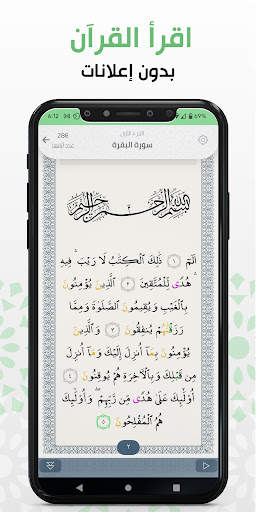 اقرأ القرآن
بدون إعلانات
6:12
69%
286
عدد آياتها
الجزء الأول
سورة البقرة
بسم الله الرحمن الرحيم
الٓمٓ ١ ذَٰلِكَ ٱلۡكِتَٰبُ لَا رَيۡبَۛ فِيهِۛ
هُدٗى لِّلۡمُتَّقِينَ ٢ ٱلَّذِينَ يُؤۡمِنُونَ
بِٱلۡغَيۡبِ وَيُقِيمُونَ ٱلصَّلَوٰةَ وَمِمَّا
رَزَقۡنَٰهُمۡ يُنفِقُونَ ٣ وَٱلَّذِينَ
يُؤۡمِنُونَ بِمَآ أُنزِلَ إِلَيۡكَ وَمَآ أُنزِلَ
مِن قَبۡلِكَ وَبِٱلۡأٓخِرَةِ هُمۡ يُوقِنُونَ ٤
أُوْلَٰٓئِكَ عَلَىٰ هُدٗى مِّن رَّبِّهِمۡۖ وَأُوْلَٰٓئِكَ
هُمُ ٱلۡمُفۡلِحُونَ ٥
٢